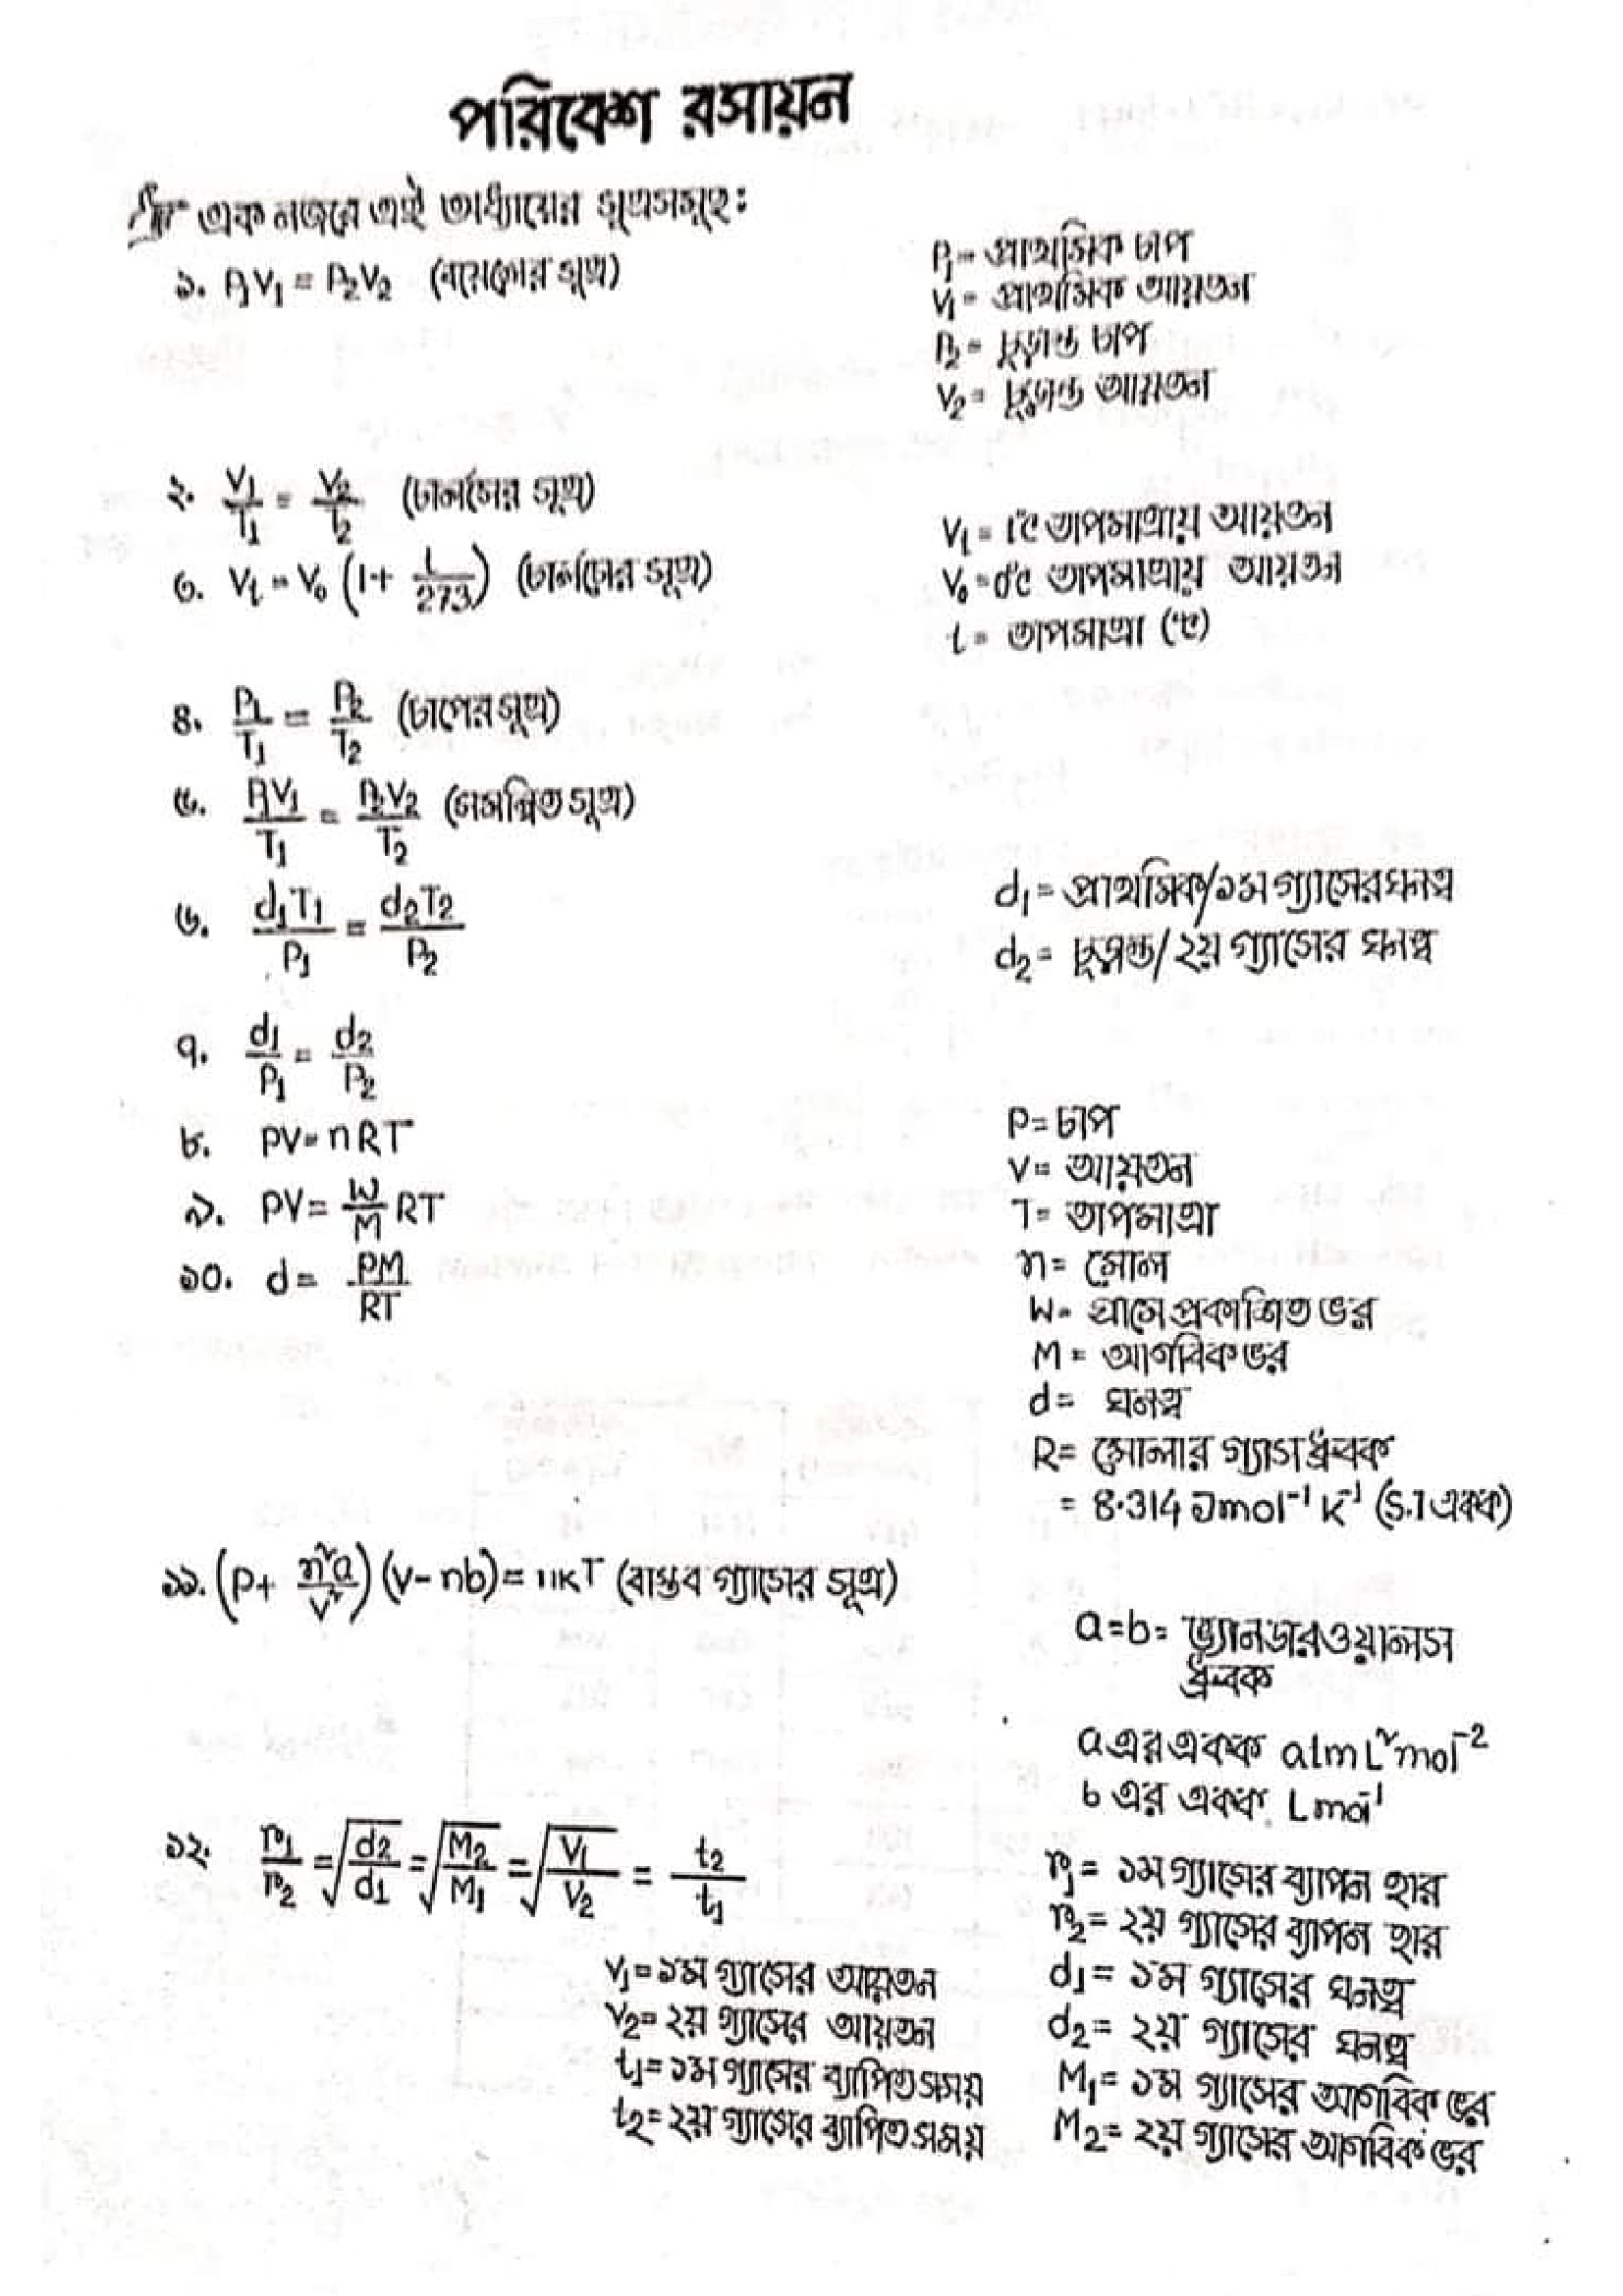 পরিবেশ রসায়ন
এক নজরে এই অধ্যায়ের সূত্রসমূহ:
১. P₁V₁ = P₂V₂ (বয়েলের সূত্র)
P₁ = প্রাথমিক চাপ
V₁ = প্রাথমিক আয়তন
P₂ = চূড়ান্ত চাপ
V₂ = চূড়ান্ত আয়তন
২. V₁/T₁ = V₂/T₂ (চার্লসের সূত্র)
৩. Vt = V₀ (1 + t/273) (চার্লসের সূত্র)
Vt = t°C তাপমাত্রায় আয়তন
V₀ = 0°C তাপমাত্রায় আয়তন
t = তাপমাত্রা (°C)
৪. P₁/T₁ = P₂/T₂ (চাপের সূত্র)
৫. P₁V₁/T₁ = P₂V₂/T₂ (সমন্বিত সূত্র)
৬. d₁T₁/P₁ = d₂T₂/P₂
d₁ = প্রাথমিক/১ম গ্যাসের ঘনত্ব
d₂ = চূড়ান্ত/২য় গ্যাসের ঘনত্ব
৭. d₁/P₁ = d₂/P₂
৮. PV = nRT
৯. PV = W/M RT
১০. d = PM/RT
P = চাপ
V = আয়তন
T = তাপমাত্রা
n = মোল
W = গ্রামে প্রকাশিত ভর
M = আণবিক ভর
d = ঘনত্ব
R = মোলার গ্যাস ধ্রুবক
= 8.314 Jmol⁻¹ K⁻¹ (S.I একক)
১১. (P + n²a/V²) (V - nb) = nRT (বাস্তব গ্যাসের সূত্র)
a = b = ভ্যানডারওয়ালস
ধ্রুবক
a এর একক atm L² mol⁻²
b এর একক Lmol⁻¹
১২. r₁/r₂ = √(d₂/d₁) = √(M₂/M₁) = √(V₁/V₂) = t₂/t₁
r₁ = ১ম গ্যাসের ব্যাপন হার
r₂ = ২য় গ্যাসের ব্যাপন হার
d₁ = ১ম গ্যাসের ঘনত্ব
d₂ = ২য় গ্যাসের ঘনত্ব
M₁ = ১ম গ্যাসের আণবিক ভর
M₂ = ২য় গ্যাসের আণবিক ভর
V₁ = ১ম গ্যাসের আয়তন
V₂ = ২য় গ্যাসের আয়তন
t₁ = ১ম গ্যাসের ব্যাপিত সময়
t₂ = ২য় গ্যাসের ব্যাপিত সময়